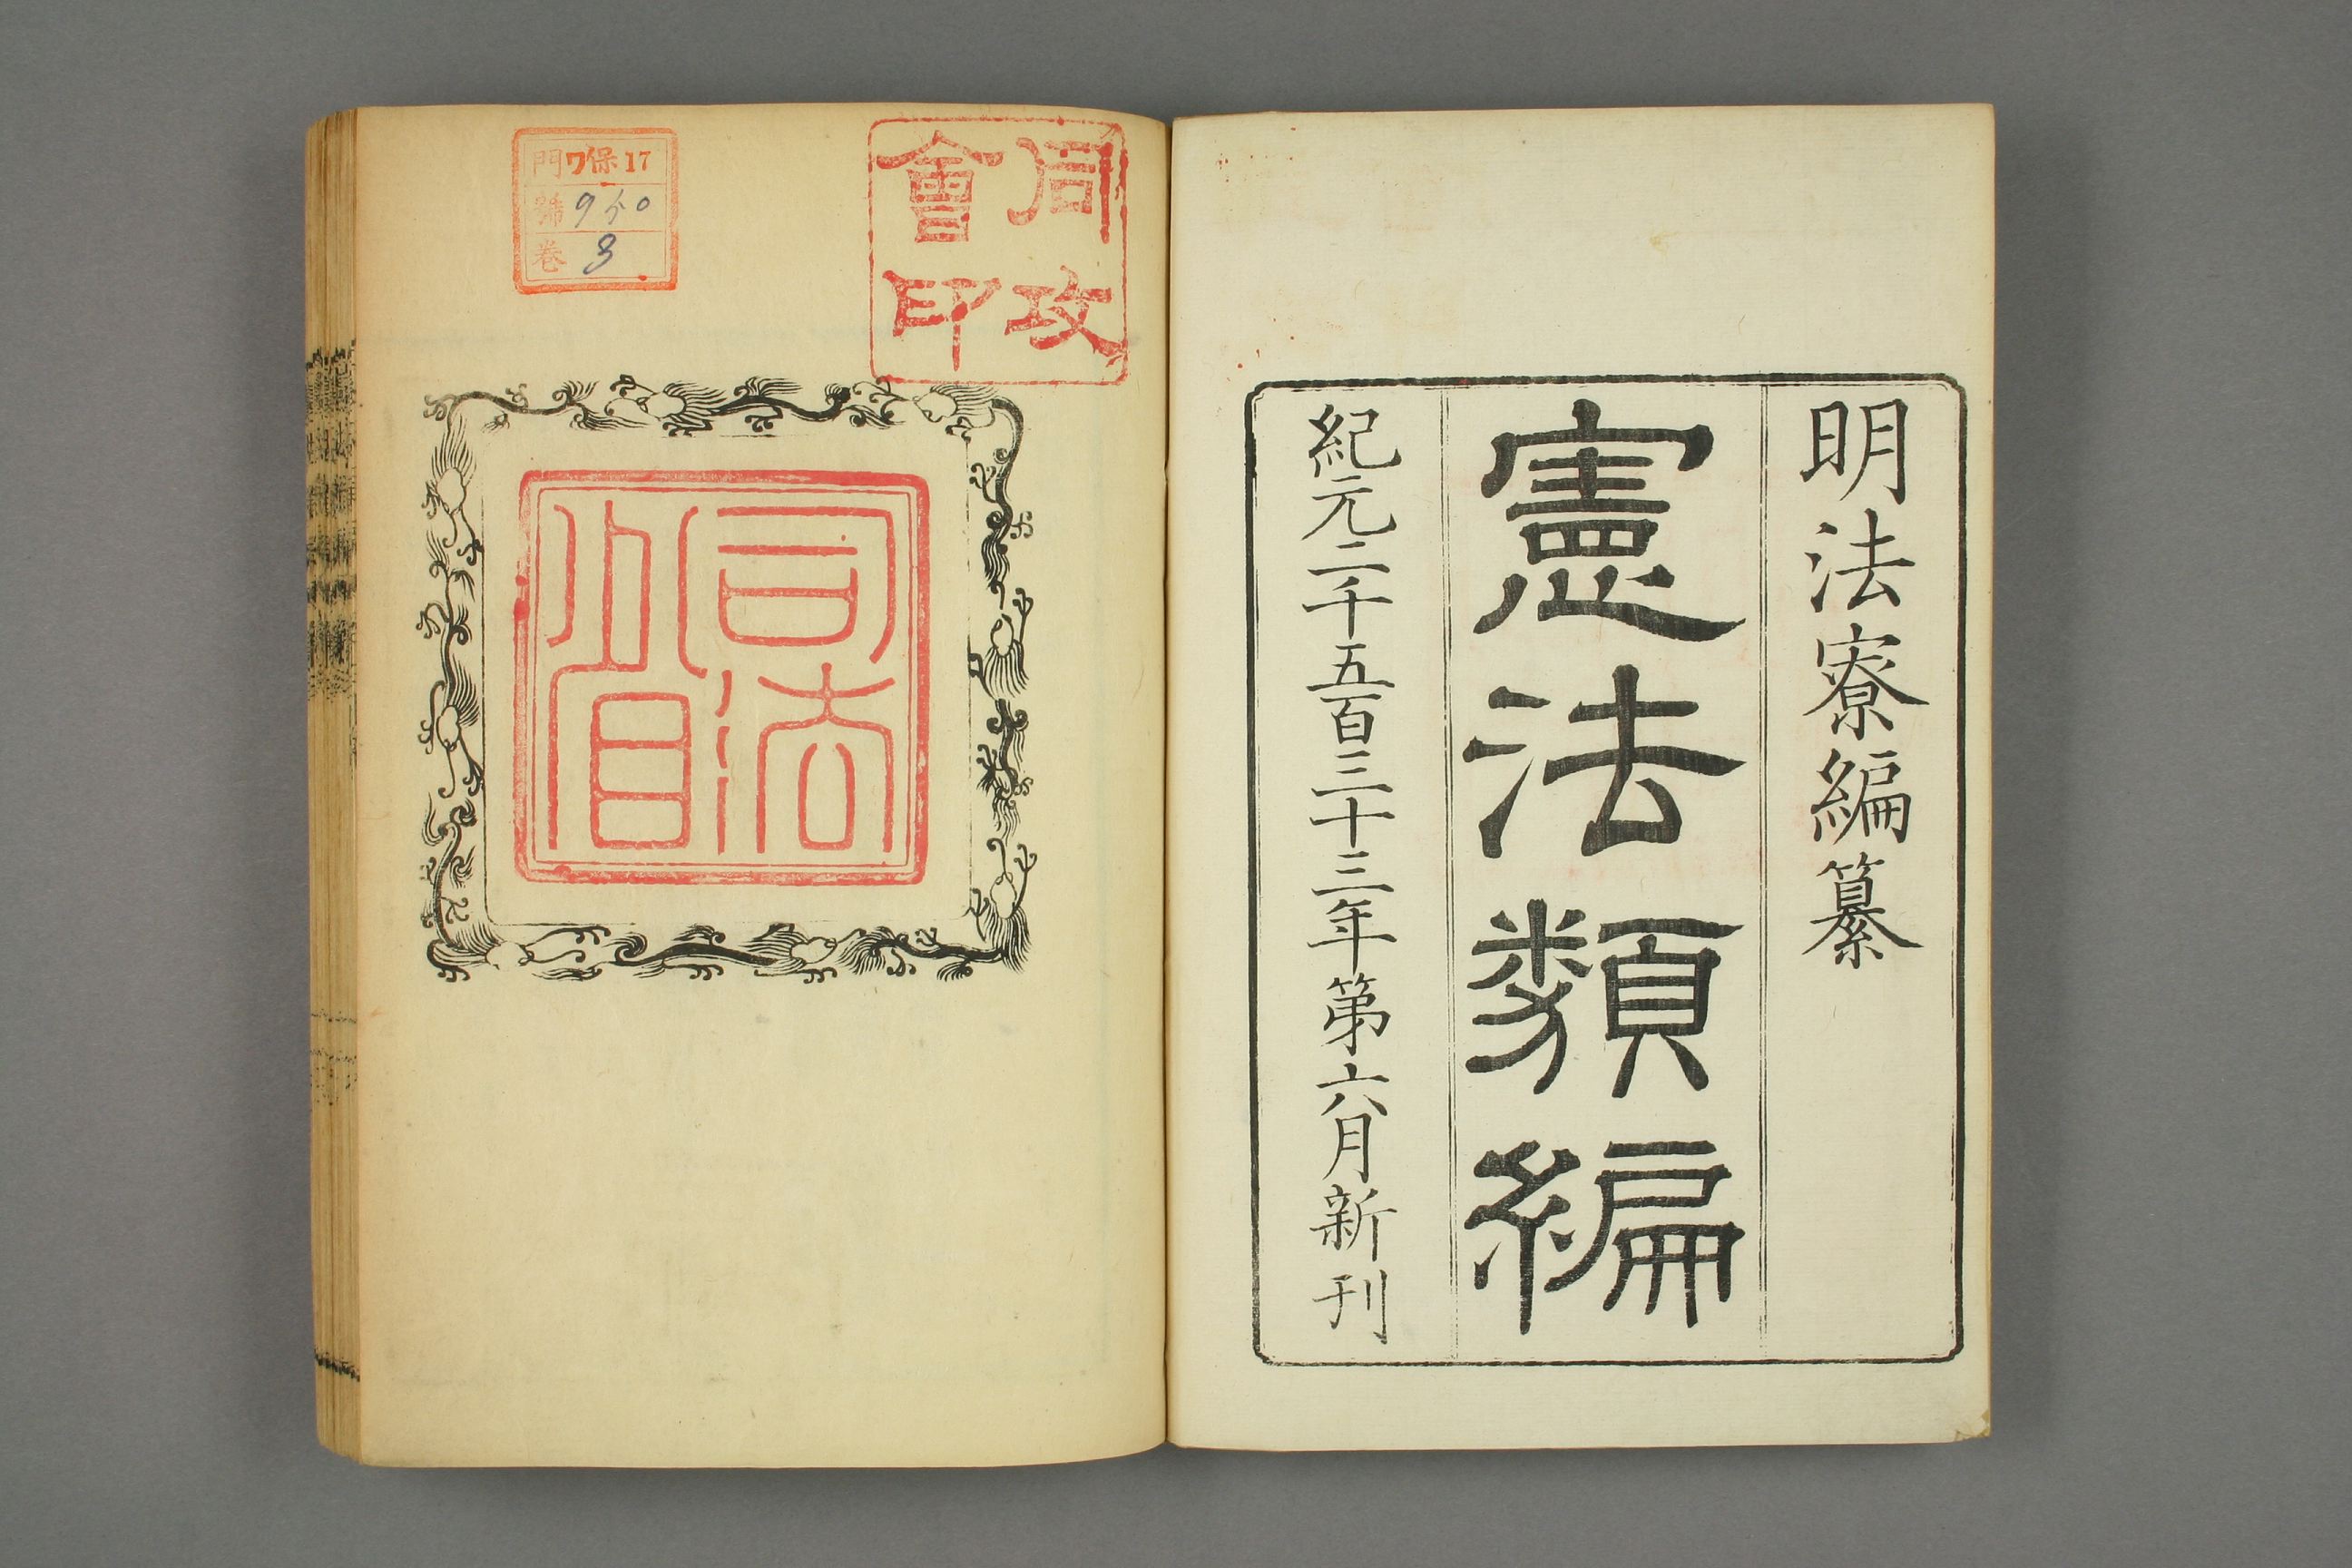 明法寮編纂
憲法類編
紀元二千五百三十三年第六月新刊
同攻
會印
門ワ保17
號950
巻3
司法
省